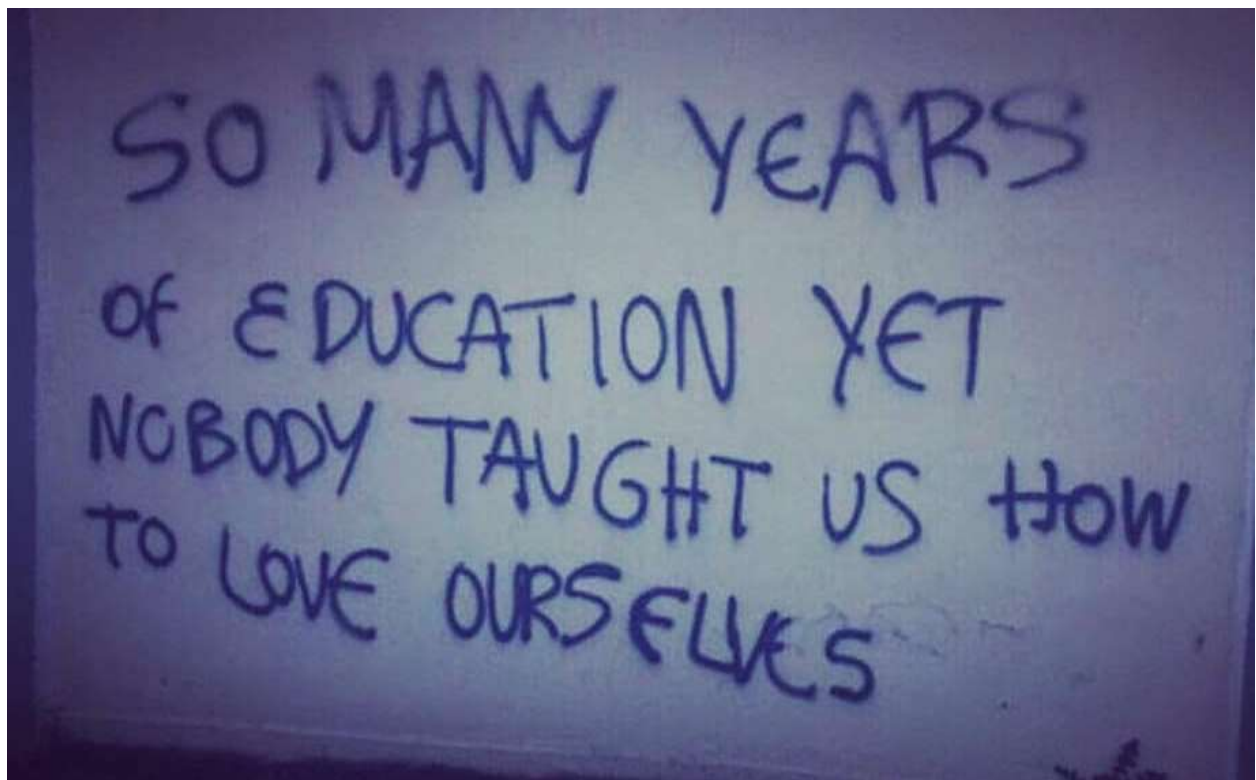 SO MANY YEARS
OF EDUCATION YET
NOBODY TAUGHT US HOW
TO LOVE OURSELVES